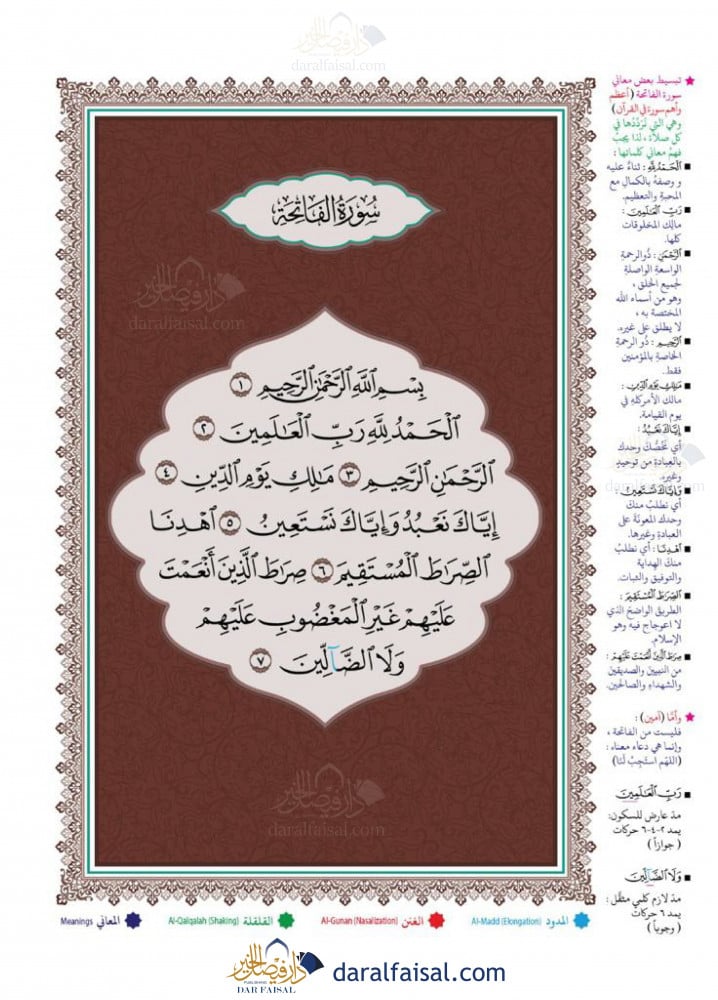 دار فيصل الخير
daralfaisal.com
سُورَةُ الفَاتِحَةِ
دار فيصل الخير
daralfaisal.com
بِسْمِ اللَّهِ الرَّحْمَٰنِ الرَّحِيمِ ١
الْحَمْدُ لِلَّهِ رَبِّ الْعَالَمِينَ ٢
الرَّحْمَٰنِ الرَّحِيمِ ٣ مَالِكِ يَوْمِ الدِّينِ ٤
إِيَّاكَ نَعْبُدُ وَإِيَّاكَ نَسْتَعِينُ ٥ اهْدِنَا
الصِّرَاطَ الْمُسْتَقِيمَ ٦ صِرَاطَ الَّذِينَ أَنْعَمْتَ
عَلَيْهِمْ غَيْرِ الْمَغْضُوبِ عَلَيْهِمْ
وَلَا الضَّآلِّينَ ٧
دار فيصل الخير
daralfaisal.com
تبسيط بعض معاني
سورة الفاتحة (أعظم
وأهم سورة في القرآن)
وهي التي نُرَدِّدُها في
كل صلاة، لذا يجبُ
فهمُ معاني كلماتها:
الْحَمْدُ لِلَّهِ: ثناءٌ عليه
ووصفهُ بالكمالِ مع
المحبةِ والتعظيم.
رَبِّ الْعَالَمِينَ:
مالك المخلوقات
كلها.
الرَّحْمَٰنِ: ذُو الرحمةِ
الواسعةِ الواصلةِ
لجميع الخلق،
وهو من أسماء الله
المختصة به،
لا يطلق على غيره.
الرَّحِيمِ: ذُو الرحمةِ
الخاصةِ بالمؤمنين
فقط.
مَالِكِ يَوْمِ الدِّينِ:
مالك الأمر كله في
يوم القيامة.
إِيَّاكَ نَعْبُدُ:
أي نَخُصُّكَ وحدك
بالعبادةِ من توحيدٍ
وغيره.
وَإِيَّاكَ نَسْتَعِينُ:
أي نطلبُ منكَ
وحدك المعونةَ على
العبادةِ وغيرها.
اهْدِنَا: أي نطلبُ
منكَ الهداية
والتوفيق والثبات.
الصِّرَاطَ الْمُسْتَقِيمَ:
الطريق الواضحَ الذي
لا اعوجاج فيه وهو
الإسلام.
صِرَاطَ الَّذِينَ أَنْعَمْتَ عَلَيْهِمْ:
من النبيينَ والصديقينَ
والشهداءِ والصالحين.
وأمّا (آمين):
فليست من الفاتحة،
وإنما هي دُعاء معناه:
(اللهُمَّ استَجِبْ لَنَا)
رَبِّ الْعَالَمِينَ
مدّ عارض للسكون:
يمد ٢-٤-٦ حركات
(جوازاً)
وَلَا الضَّآلِّينَ
مدّ لازم كلمي مثقّل:
يمد ٦ حركات
(وجوباً)
المدود Al-Madd (Elongation)
الغنن Al-Gunan (Nasalization)
القلقلة Al-Qalqalah (Shaking)
المعاني Meanings
دار فيصل الخير
PUBLISHING
DAR FAISAL
daralfaisal.com